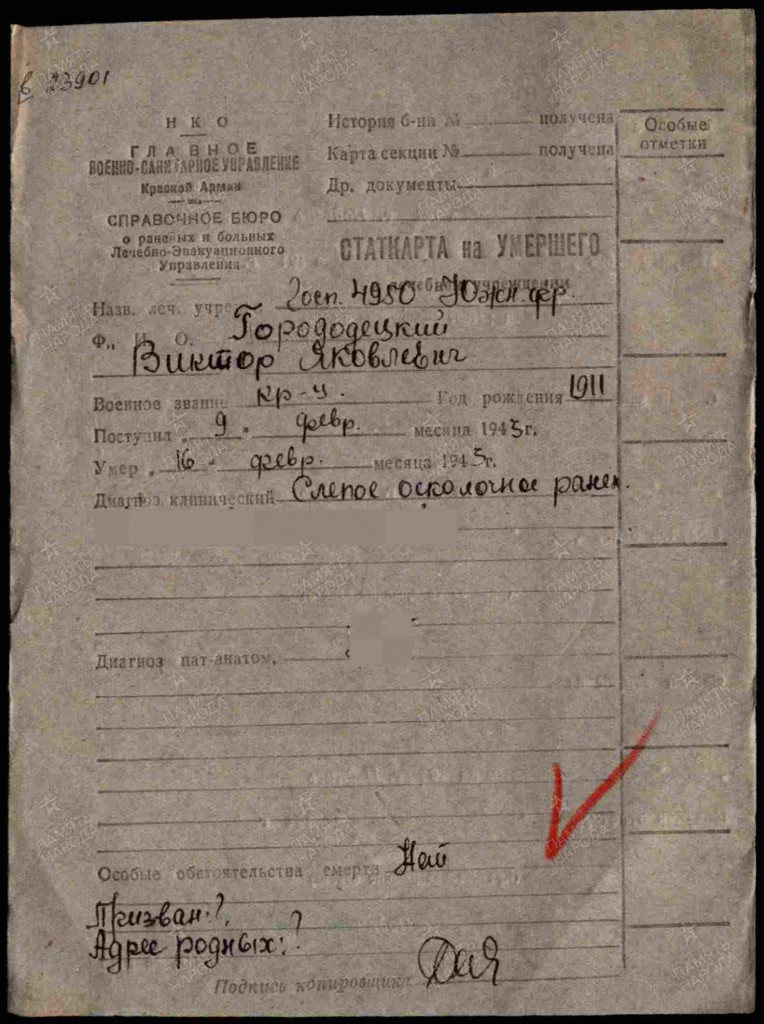 в 23901
НКО
ГЛАВНОЕ
ВОЕННО-САНИТАРНОЕ УПРАВЛЕНИЕ
Красной Армии
СПРАВОЧНОЕ БЮРО
о раненых и больных
Лечебно-Эвакуационного
Управления
История б-ни № получена
Карта секции № получена
Др. документы
Особые
отметки
СТАТКАРТА на УМЕРШЕГО
Назв. леч. учре Госп. 4950 Южн. фр.
Ф., И. О. Горододецкий
Виктор Яковлевич
Военное звание кр-ц. Год рождения 1911
Поступил „ 9 " февр. месяца 1943г.
Умер „ 16 " февр. месяца 1943г.
Диагноз клинический Слепое осколочное ранен.
Диагноз пат-анатом.
Особые обстоятельства смерти Нет
Призван: ?
Адрес родных: ?
Подпись копировщика
ПАМЯТЬ НАРОДА